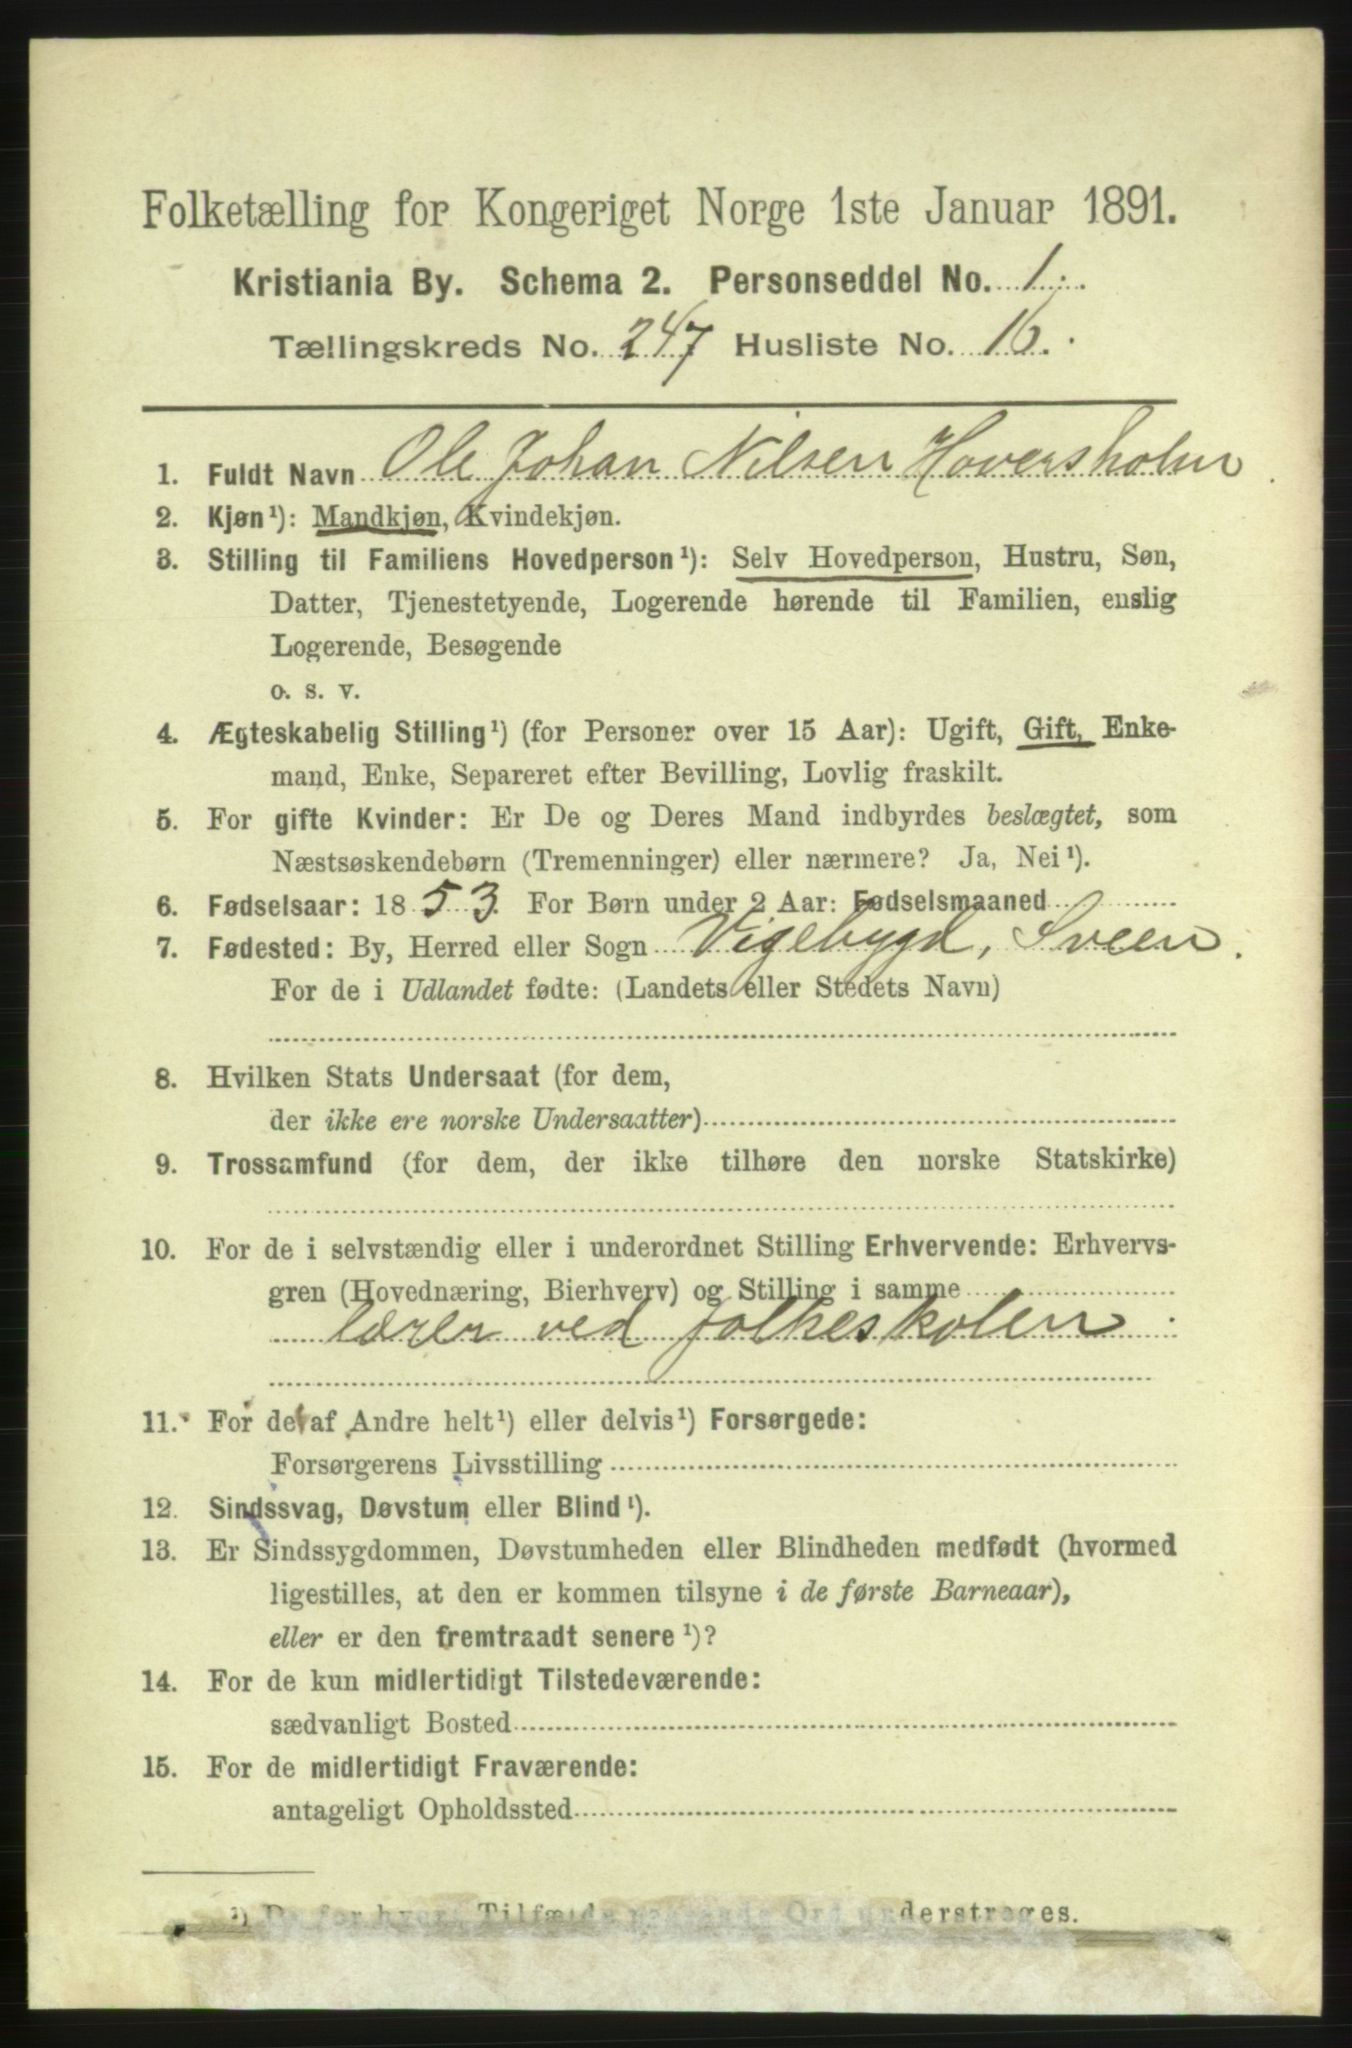 Folketælling for Kongeriget Norge 1ste Januar 1891.
Kristiania By. Schema 2. Personseddel No. 1.
Tællingskreds No. 247 Husliste No. 16.
1. Fuldt Navn Ole Johan Nilsen Hoversholm
2. Kjøn¹): Mandkjøn, Kvindekjøn.
3. Stilling til Familiens Hovedperson¹): Selv Hovedperson, Hustru, Søn,
Datter, Tjenestetyende, Logerende hørende til Familien, enslig
Logerende, Besøgende
o. s. v.
4. Ægteskabelig Stilling¹) (for Personer over 15 Aar): Ugift, Gift, Enke-
mand, Enke, Separeret efter Bevilling, Lovlig fraskilt.
5. For gifte Kvinder: Er De og Deres Mand indbyrdes beslægtet, som
Næstsøskendebørn (Tremenninger) eller nærmere? Ja, Nei¹).
6. Fødselsaar: 1853. For Børn under 2 Aar: Fødselsmaaned
7. Fødested: By, Herred eller Sogn Vigebygd, Sveen.
For de i Udlandet fødte: (Landets eller Stedets Navn)
8. Hvilken Stats Undersaat (for dem,
der ikke ere norske Undersaatter)
9. Trossamfund (for dem, der ikke tilhøre den norske Statskirke)
10. For de i selvstændig eller i underordnet Stilling Erhvervende: Erhvervs-
gren (Hovednæring, Bierhverv) og Stilling i samme
lærer ved folkeskolen
11. For de af Andre helt¹) eller delvis¹) Forsørgede:
Forsørgerens Livsstilling
12. Sindssvag, Døvstum eller Blind¹).
13. Er Sindssygdommen, Døvstumheden eller Blindheden medfødt (hvormed
ligestilles, at den er kommen tilsyne i de første Barneaar),
eller er den fremtraadt senere¹)?
14. For de kun midlertidigt Tilstedeværende:
sædvanligt Bosted
15. For de midlertidigt Fraværende:
antageligt Opholdssted
¹) De for hvert Tilfælde passende Ord understreges.